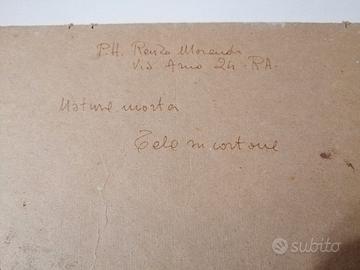 P.H. Renzo Morandi
Via Arno 24 - RA.
Natura morta
Tela in cartone
subito